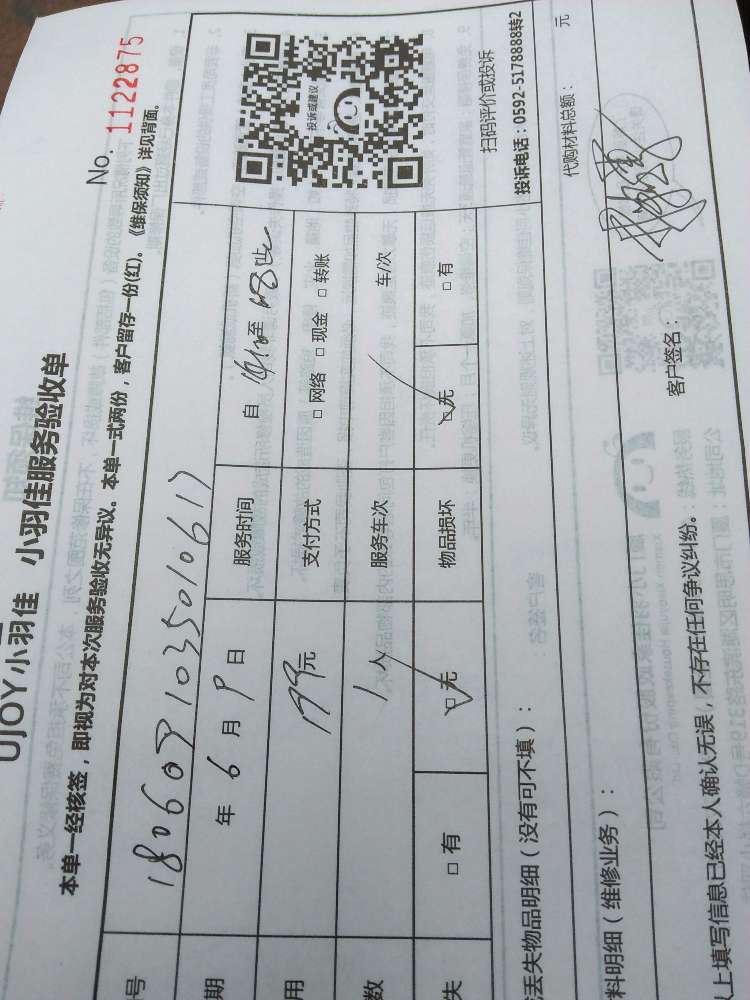 UJOY小羽佳 小羽佳服务验收单
No. 1122875
本单一经核签，即视为对本次服务验收无异议。本单一式两份，客户留存一份(红)。《维保须知》详见背面。
号
期 年 6 月 9 日 服务时间 自 至
用 199元 支付方式 □ 网络 □ 现金 □ 转账
数 1人 服务车次 车/次
失 □ 有 □ 无 物品损坏 □ 无 □ 有
投诉或建议
扫码评价或投诉
投诉电话：0592-5178888转2
丢失物品明细（没有可不填）：
料明细（维修业务）： 代购材料总额： 元
以上填写信息已经本人确认无误，不存在任何争议纠纷。 客户签名：